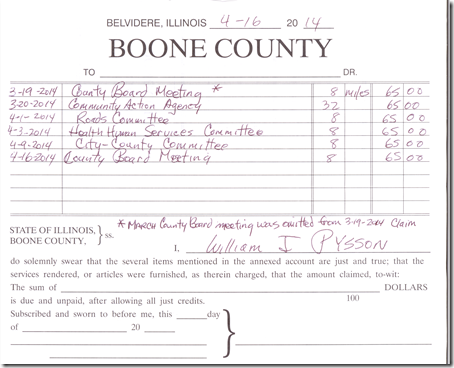 BELVIDERE, ILLINOIS 4-16 2014
BOONE COUNTY
TO DR.
3-19-2014 County Board Meeting * 8 miles 65 00
3-20-2014 Community Action Agency 32 65 00
4-1-2014 Roads Committee 8 65 00
4-3-2014 Health Human Services Committee 8 65 00
4-9-2014 City-County Committee 8 65 00
4-16-2014 County Board Meeting 8 65 00
* MARCH County Board meeting was omitted from 3-19-2014 claim
STATE OF ILLINOIS,
BOONE COUNTY, } ss.
I, William J Pysson
do solemnly swear that the several items mentioned in the annexed account are just and true; that the
services rendered, or articles were furnished, as therein charged, that the amount claimed, to-wit:
The sum of DOLLARS
100
is due and unpaid, after allowing all just credits.
Subscribed and sworn to before me, this day
of 20